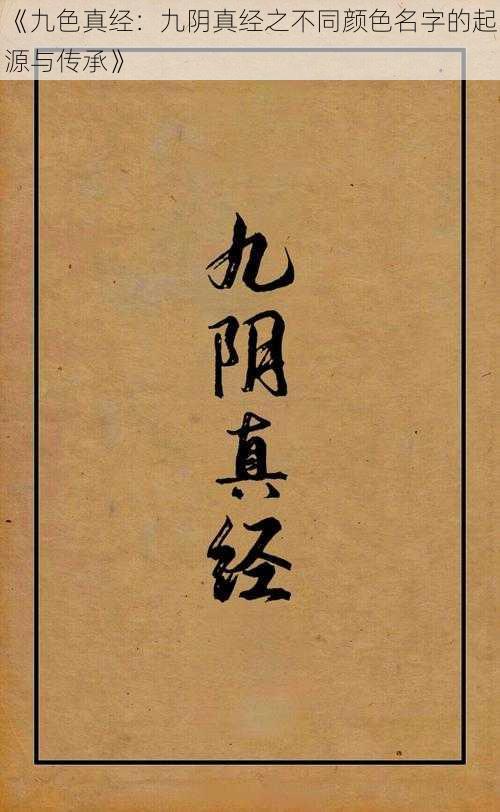 《九色真经：九阴真经之不同颜色名字的起
源与传承》
九阴真经